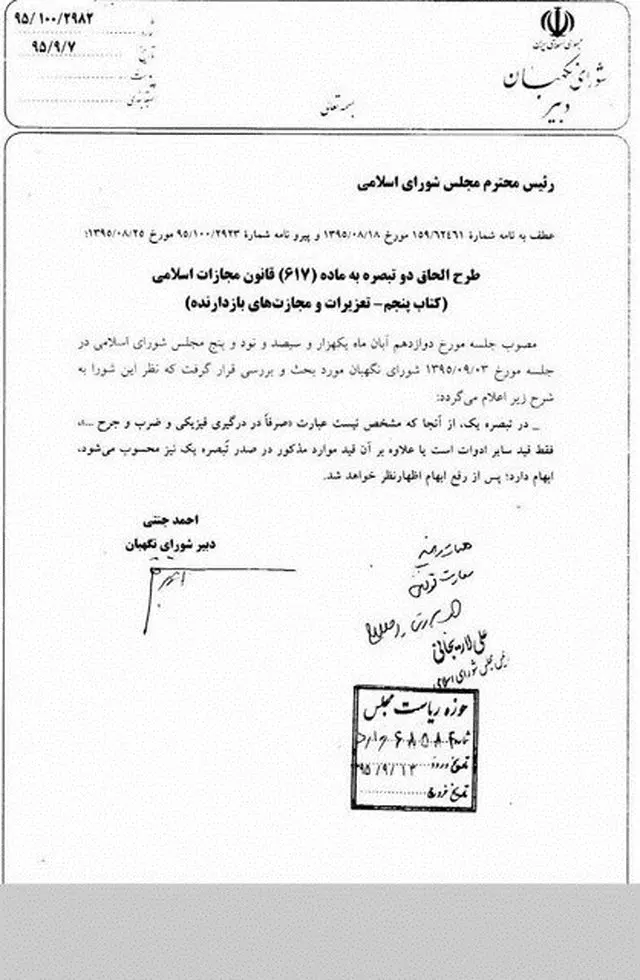 ۹۵/۱۰۰/۲۹۸۲
شماره
۹۵/۹/۷
تاریخ
پیوست
جمهوری اسلامی ایران
شورای نگهبان
دبیر
بسمه تعالی
رئیس محترم مجلس شورای اسلامی
عطف به نامه شمارۀ ۱۵۹/۶۲۴۶۱ مورخ ۱۳۹۵/۰۸/۱۸ و پیرو نامه شمارۀ ۹۵/۱۰۰/۲۹۲۳ مورخ ۱۳۹۵/۰۸/۲۵؛
طرح الحاق دو تبصره به ماده (۶۱۷) قانون مجازات اسلامی
(کتاب پنجم- تعزیرات و مجازت‌های بازدارنده)
مصوب جلسه مورخ دوازدهم آبان ماه یکهزار و سیصد و نود و پنج مجلس شورای اسلامی در
جلسه مورخ ۱۳۹۵/۰۹/۰۳ شورای نگهبان مورد بحث و بررسی قرار گرفت که نظر این شورا به
شرح زیر اعلام می‌گردد:
_ در تبصره یک، از آنجا که مشخص نیست عبارت «صرفاً در درگیری فیزیکی و ضرب و جرح ...»،
فقط قید سایر ادوات است یا علاوه بر آن قید موارد مذکور در صدر تبصره یک نیز محسوب می‌شود،
ابهام دارد؛ پس از رفع ابهام اظهارنظر خواهد شد.
احمد جنتی
دبیر شورای نگهبان
معاونت قوانین
علی لاریجانی
رئیس مجلس شورای اسلامی
حوزه ریاست مجلس
شماره
تاریخ ورود ۹۵/۹/۱۳
تاریخ خروج